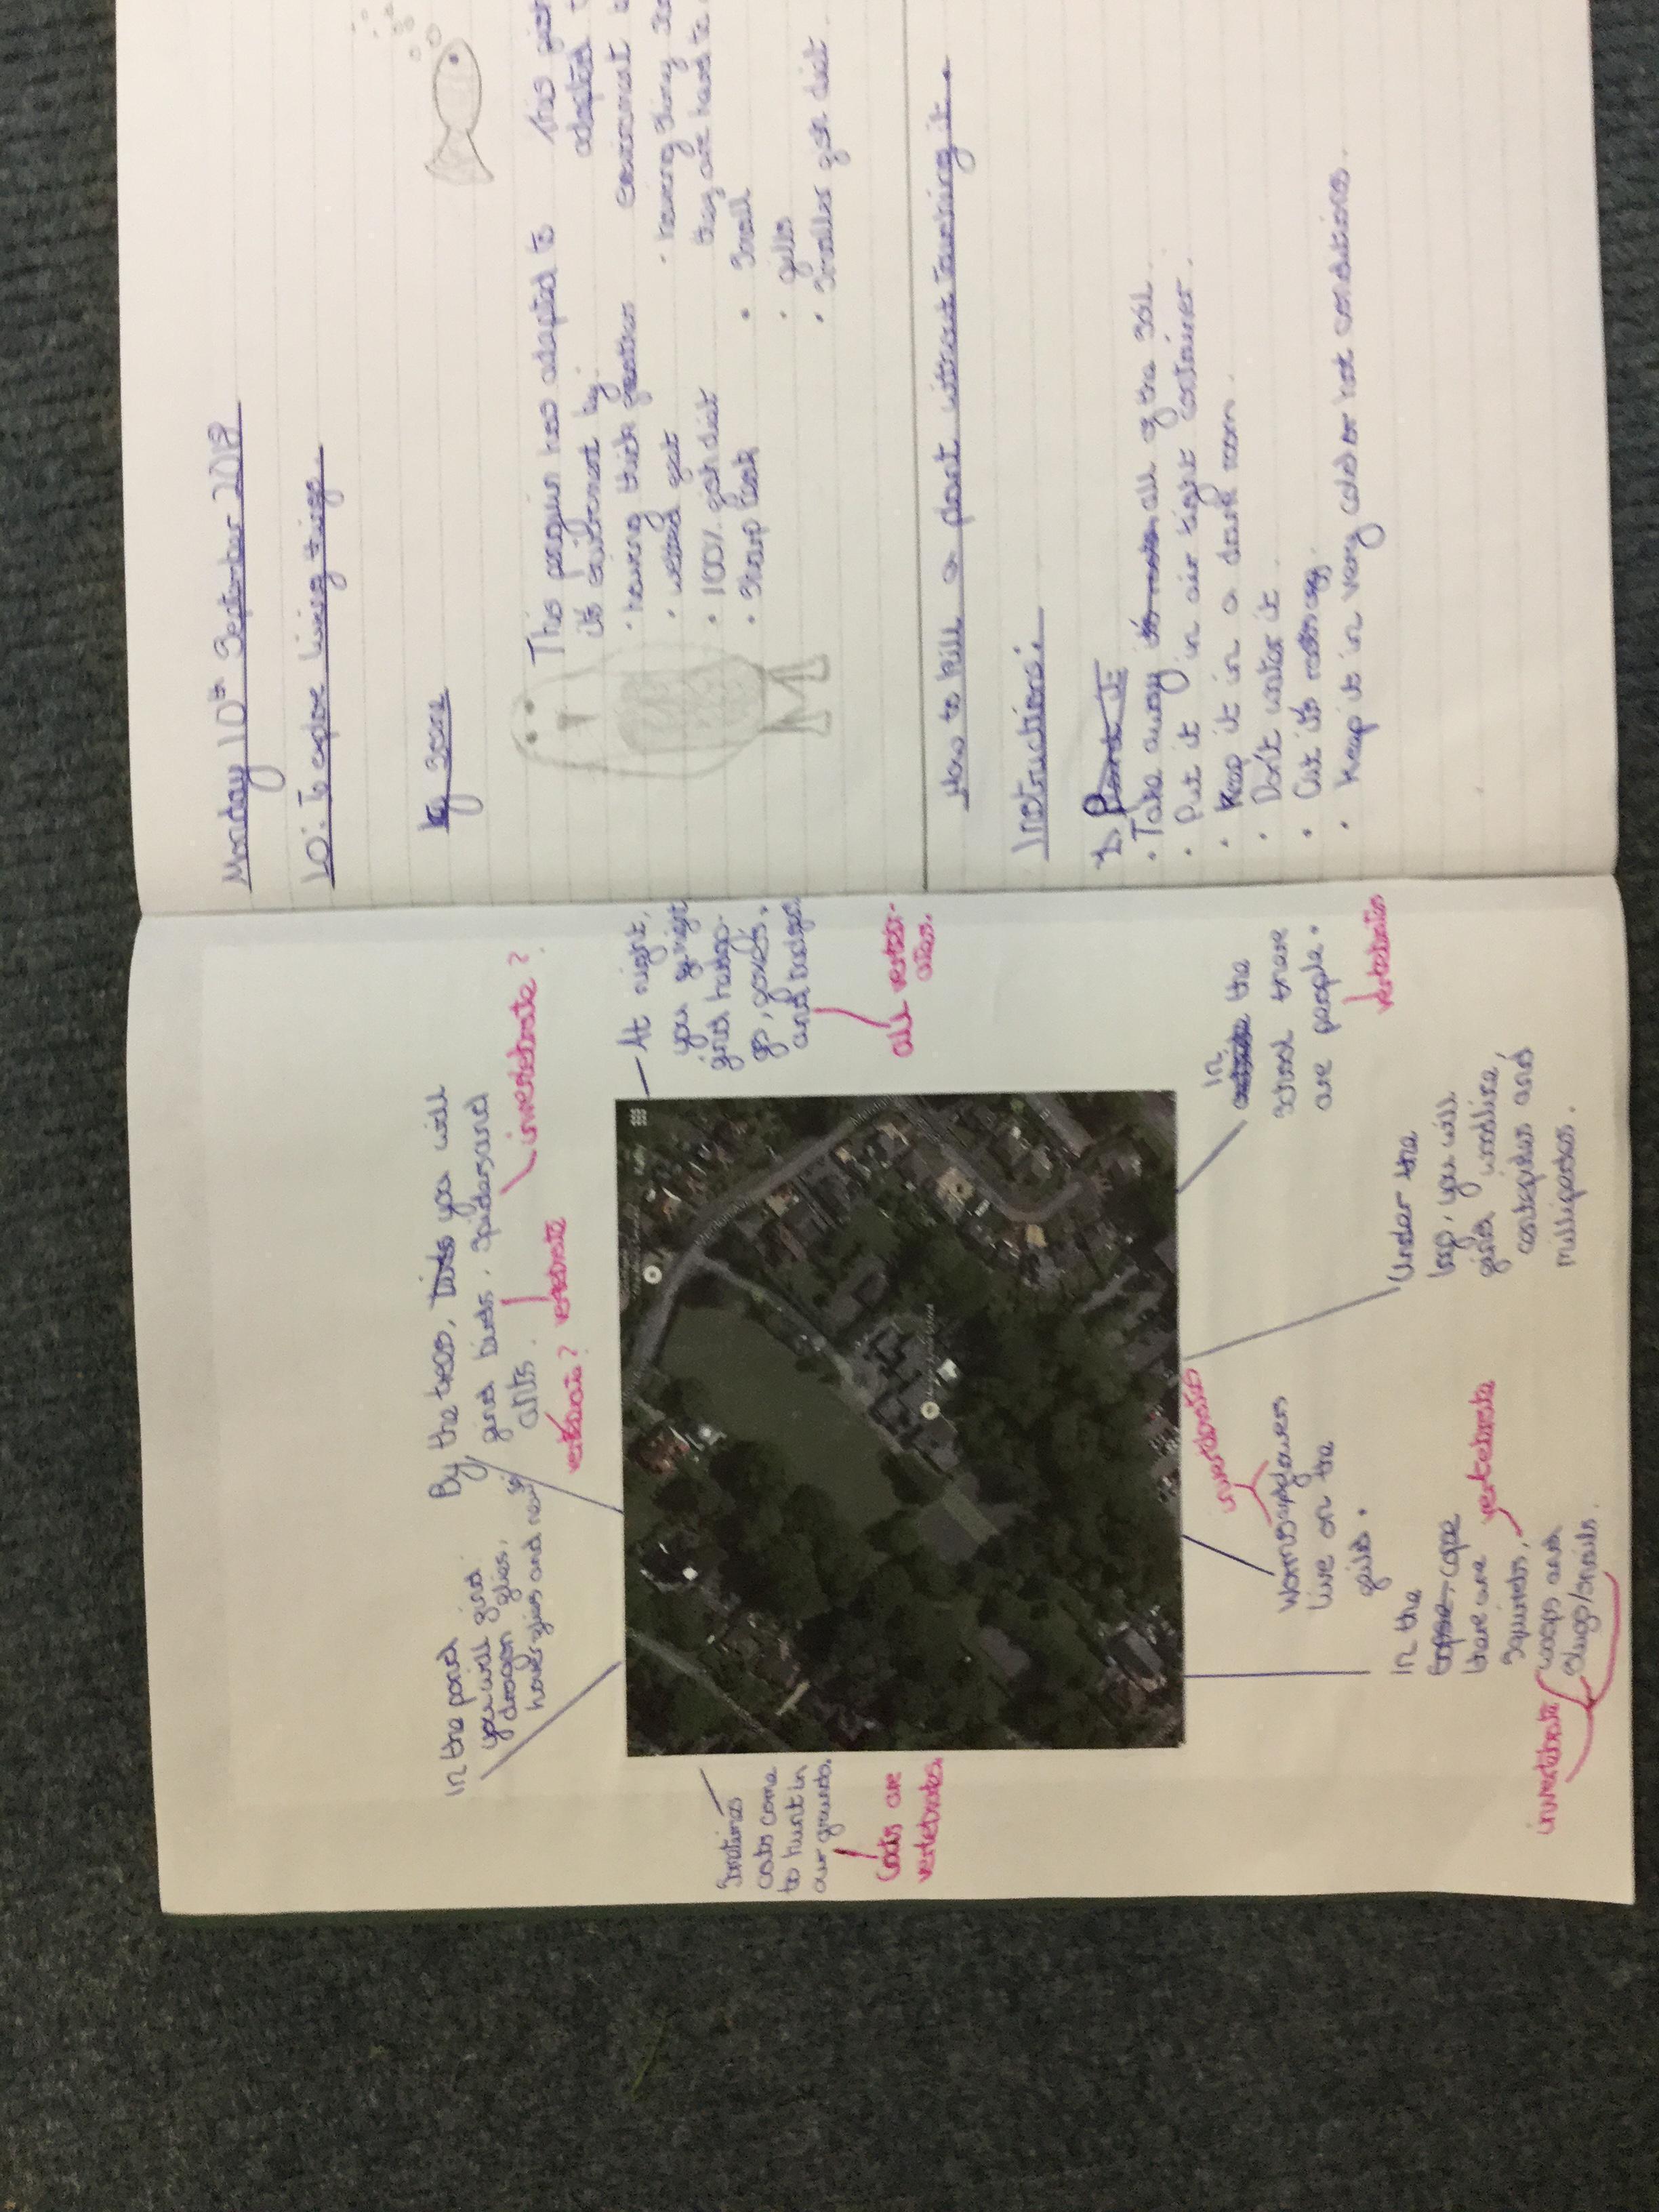 In the pond
you will find
dragon flies,
hover flies and
By the trees, birds you will
find birds, spiders and
ants.
invertebrate?
vertebrate? vertebrate
At night,
you might
find hedgeho-
gs, foxes,
and badgers
all verteb-
ates.
Sometimes
cats come
to hunt in
our grounds.
Cats are
vertebrates.
In
the
school there
are people.
vertebrates
Under the
log, you will
find woodlice,
centipedes and
millipedes.
invertebrates
Worms and
live on the
feild.
In the
copse
there are
squirrels, vertebrate
wasps and
slugs/snails.
invertebrate
Monday 10th September 2018
LO: To explore living things.
This penguin has adapted to
its enviroment by:
• having thick
• webed feet
• 100% fish diet
• Sharp beak
This fish
adapted
• having
they are hard to
• Small
• gills
• Smaller fish diet
How to kill a plant without touching it.
Instructions:
• Take away its roots all of the soil.
• Put it in air tight container.
• Keep it in a dark room.
• Don't water it.
• Cut its roots off.
• Keep it in very cold or hot conditions.